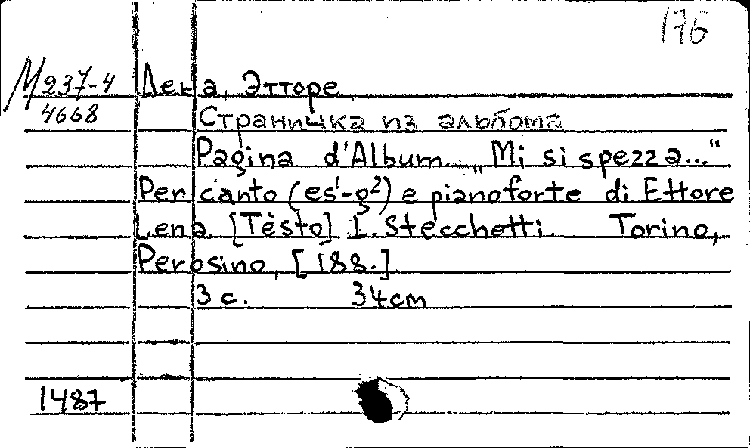 176
М 237-4 Лена, Этторе
4668 Страничка из альбома
Pagina d'Album. „Mi si spezza..."
Per canto (es¹-g²) e pianoforte di Ettore
Lena. [Tèsto] I. Stecchetti. Torino,
Perosino, [188.]
3 с. 34cm
1487